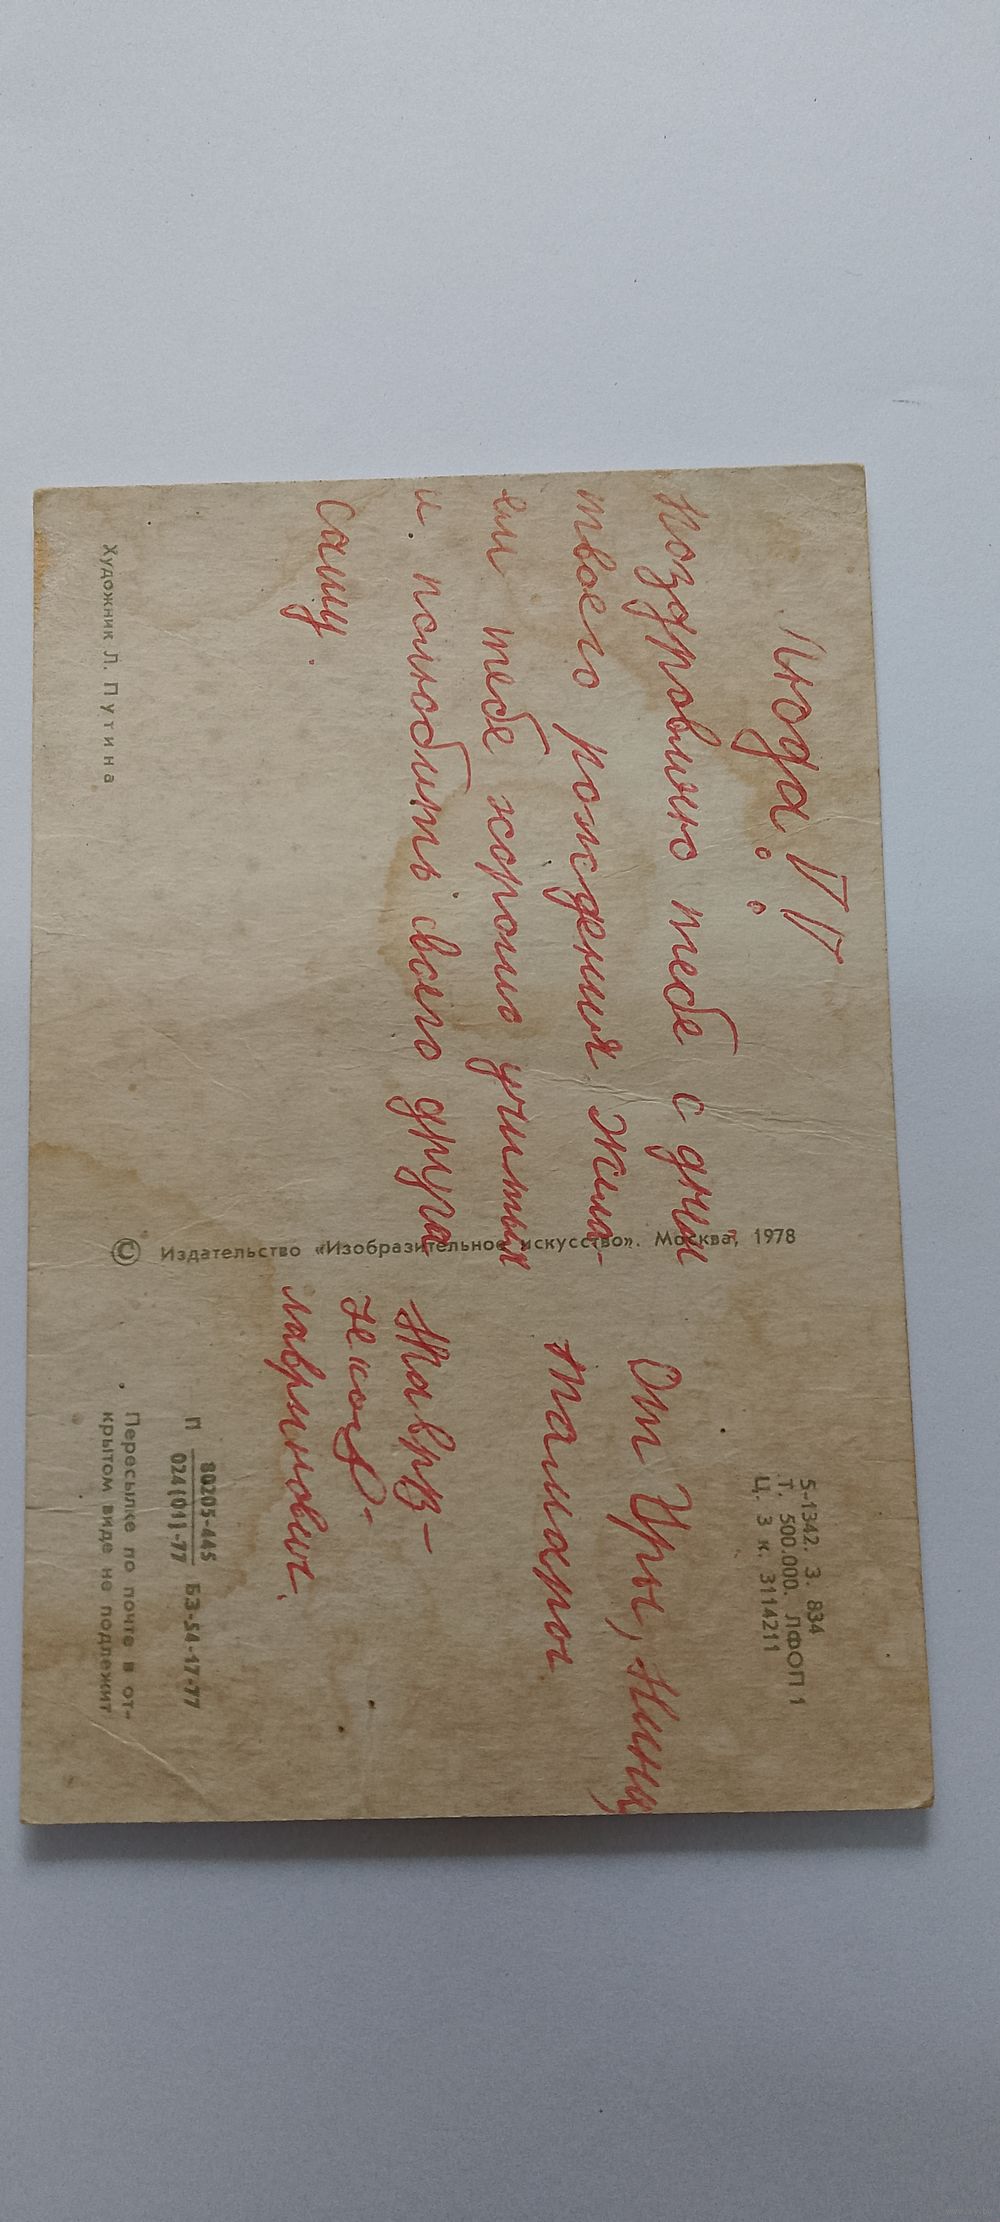 Люда!!
поздровляю тебе с днём
твоего рождения. Жила-
ем тебе хорошо учиться
и полюбить своего друга
Сашу.
От Иры, Нины,
Тамары
Лаврынович.
Художник Л. Путина
© Издательство «Изобразительное искусство». Москва, 1978
5-1342. З. 834
Т. 500.000. ЛФОП 1
Ц. 3 к. 3114211
П 80205-445
024(01)-77 БЗ-54-17-77
Пересылке по почте в от-
крытом виде не подлежит